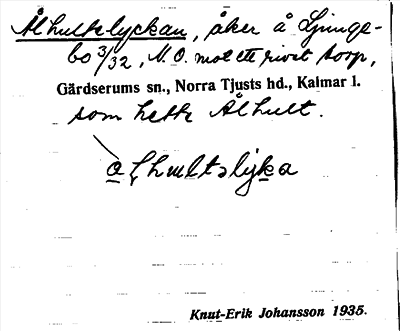 Ålhultslyckan, åker å Ljunge-
bo 3/32, N.O. mot ett rivet torp,
Gärdserums sn., Norra Tjusts hd., Kalmar l.
som hette Ålhult.
Knut-Erik Johansson 1935.